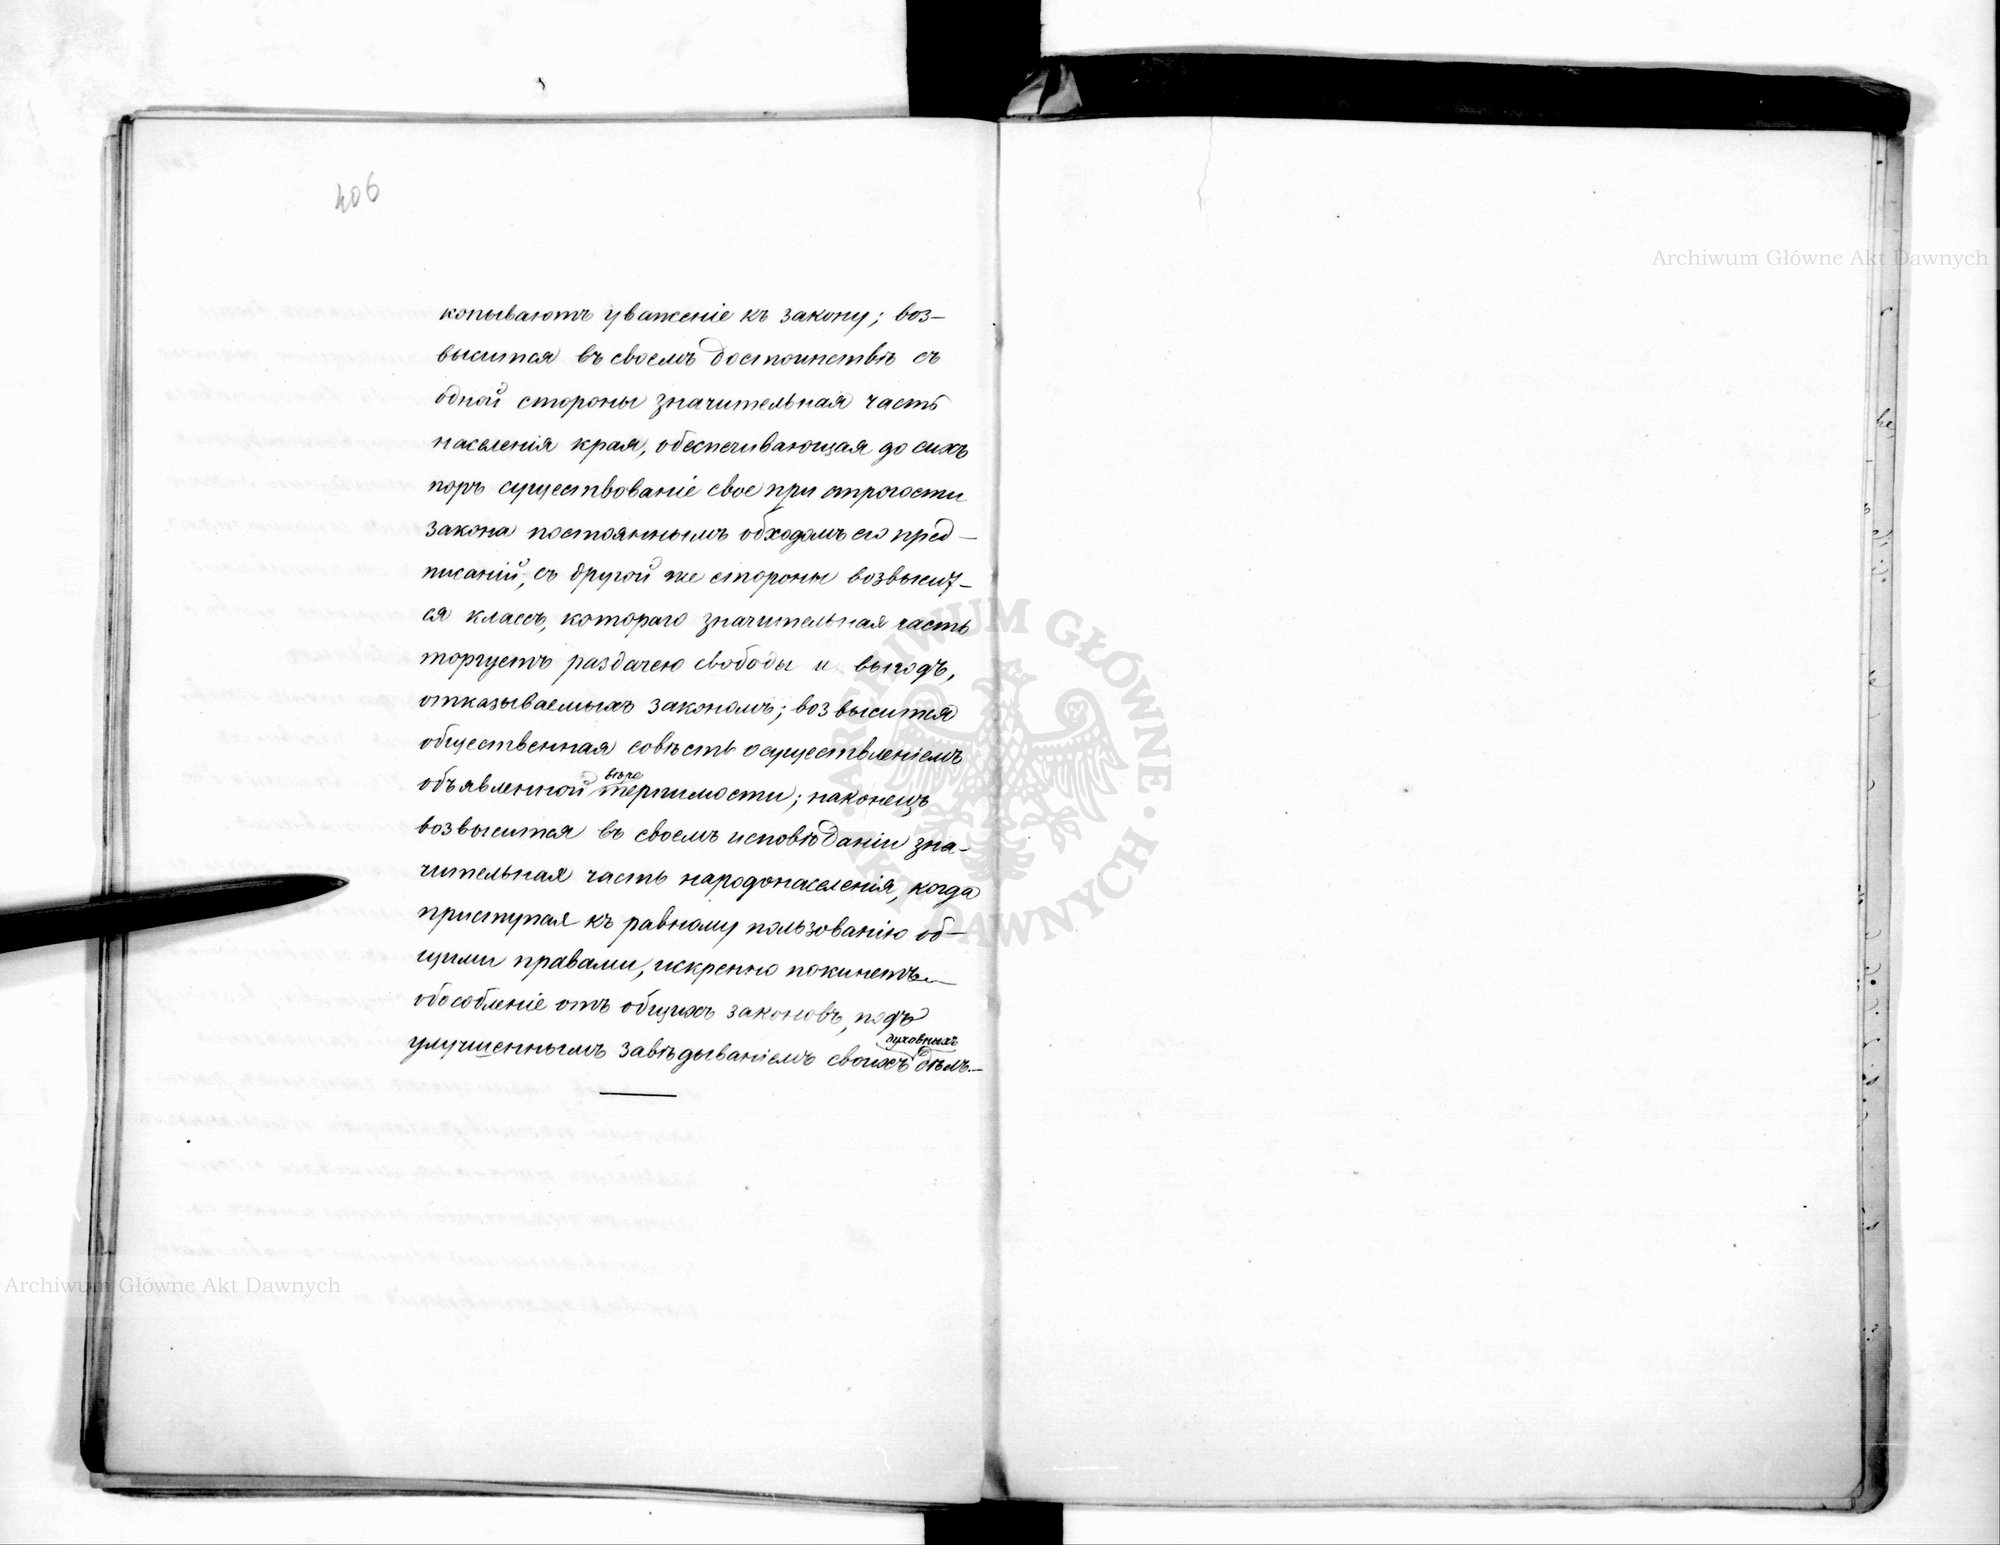 406
копываютъ уваженіе къ закону; воз-
высится въ своемъ достоинствѣ съ
одной стороны значительная часть
населенія края, обеспечивающая до сихъ
поръ существованіе свое при строгости
закона постояннымъ обходомъ его пред-
писаній, съ другой же стороны возвысит-
ся классъ, котораго значительная часть
торгуетъ раздачею свободы и выгодъ,
отказываемыхъ закономъ; возвысится
общественная совѣсть осуществленіемъ
вѣро
объявленной терпимости; наконецъ
возвысится въ своемъ исповѣданіи зна-
чительная часть народонаселенія, когда
приступая къ равному пользованію об-
щими правами, искренно покинетъ
обособленіе отъ общихъ законовъ, подъ
духовныхъ
улучшеннымъ завѣдываніемъ своихъ дѣлъ.—
Archiwum Główne Akt Dawnych
ARCHIWUM GŁÓWNE AKT DAWNYCH
Archiwum Główne Akt Dawnych